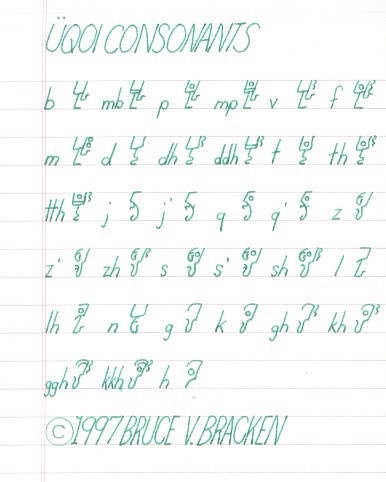 ÜQOI CONSONANTS
b mb p mp v f
m d dh ddh t th
tth j j' q q' z
z' zh s s' sh l
lh n g k gh kh
ggh kkh h
©1997 BRUCE V. BRACKEN